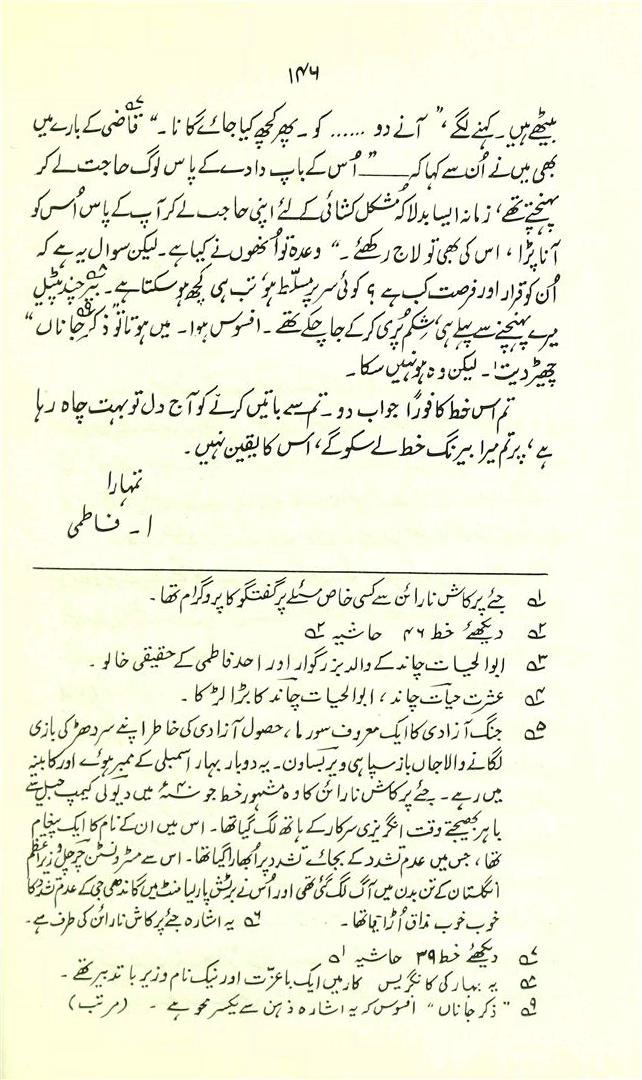 ۱۴۶
بیٹھے ہیں ۔ کہنے لگے ، ” آنے دو ...... کو ۔ پھر کچھ کیا جائے گا نا ۔ “ قاضی۷ کے بارے میں
بھی میں نے اُن سے کہا کہ ـــــ ” اُس کے باپ دادے کے پاس لوگ حاجت لے کر
پہنچتے تھے ، زمانہ ایسا بدلا کہ مُشکل کشائی کے لئے اپنی حاجت لے کر آپ کے پاس اُس کو
آنا پڑا ، اس کی بھی تو لاج رکھئے ۔ “ وعدہ تو اُنھوں نے کیا ہے ۔ لیکن سوال یہ ہے کہ
اُن کو قرار اور فرصت کب ہے ؟ کوئی سر پر مسلّط ہو تب ہی کچھ ہو سکتا ہے ۔ بیرچند پٹیل۸
میرے پہنچنے سے پہلے ہی شِکم پُری کر کے جا چکے تھے ۔ افسوس ہوا ۔ میں ہوتا تو ” ذکرِ جاناں۹ “
چھیڑ دیتا ۔ لیکن وہ ہو نہیں سکا ۔
تم اس خط کا فوراً جواب دو ۔ تم سے باتیں کرنے کو آج دل تو بہت چاہ رہا
ہے ، پر تم میرا بیرنگ خط لے سکو گے ، اس کا یقین نہیں ۔
تمہارا
ا ۔ فاطمی
۱ جئے پرکاش نارائن سے کسی خاص مسئلے پر گفتگو کا پروگرام تھا ۔
۲ دیکھئے خط ۴۶ حاشیہ ۲
۳ ابوالحیات چاند کے والد بزرگوار اور احمد فاطمی کے حقیقی خالو ۔
۴ عشرت حیات چاند ، ابوالحیات چاند کا بڑا لڑکا ۔
۵ جنگ آزادی کا ایک معروف سورما ، حصول آزادی کی خاطر اپنے سر دھڑ کی بازی
لگانے والا جاں باز سپاہی ویر بساون ۔ یہ دو بار بہار اسمبلی کے ممبر ہوئے اور کابینہ
میں رہے ۔ جئے پرکاش نارائن کا وہ مشہور خط جو ۴۰ء میں دیولی کیمپ جیل سے
باہر بھیجتے وقت انگریزی سرکار کے ہاتھ لگ گیا تھا ۔ اس میں ان کے نام کا ایک پیغام
تھا ، جس میں عدم تشدد کے بجائے تشدد پر اُبھارا گیا تھا ۔ اس سے مسٹر ونسٹن چرچل وزیر اعظم
انگلستان کے تن بدن میں آگ لگ گئی تھی اور اُس نے برٹش پارلیامنٹ میں گاندھی جی کے عدم تشدد کا
خوب خوب مذاق اُڑایا تھا ۔ ۶ یہ اشارہ جئے پرکاش نارائن کی طرف ہے ۔
۷ دیکھئے خط ۳۹ حاشیہ ۱
۸ یہ بہار کی کانگریس سرکار میں ایک باعزّت اور نیک نام وزیر با تدبیر تھے ۔
۹ ” ذکر جاناں “ افسوس کہ یہ اشارہ ذہن سے یکسر محو ہے ۔ (مرتب)